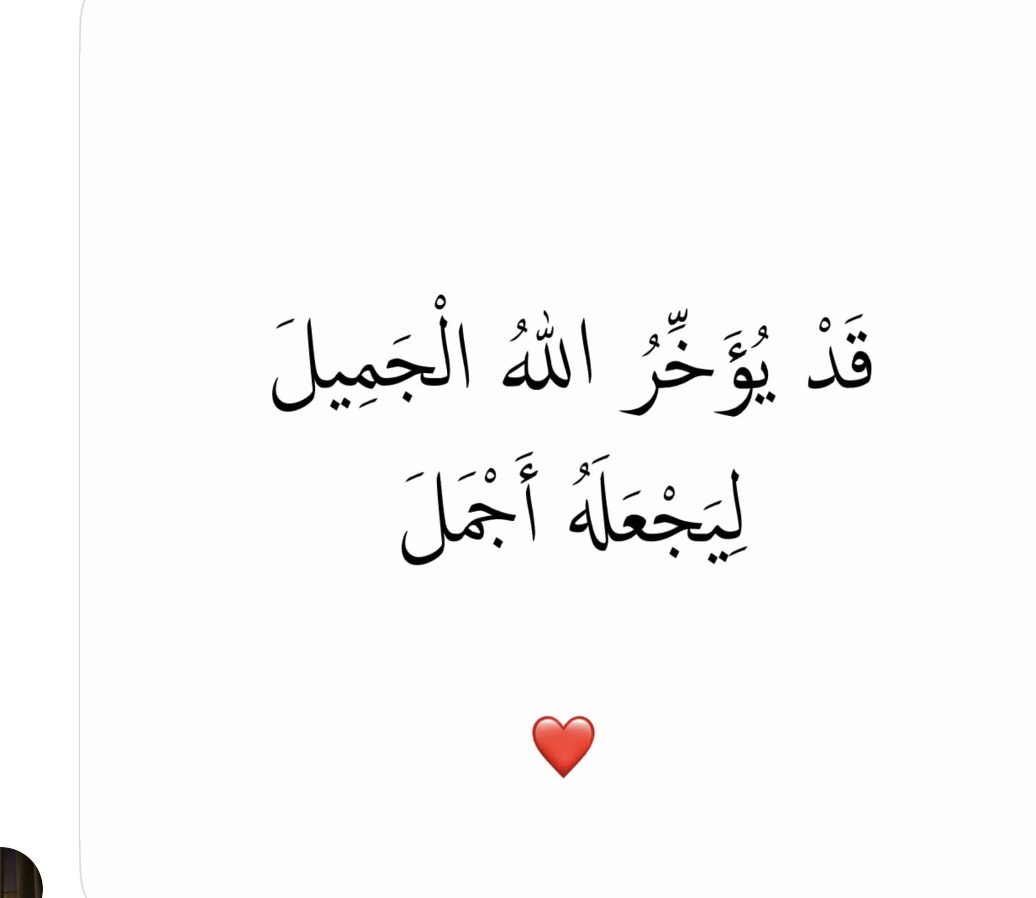 قَدْ يُؤَخِّرُ اللهُ الْجَمِيلَ
لِيَجْعَلَهُ أَجْمَلَ
❤️